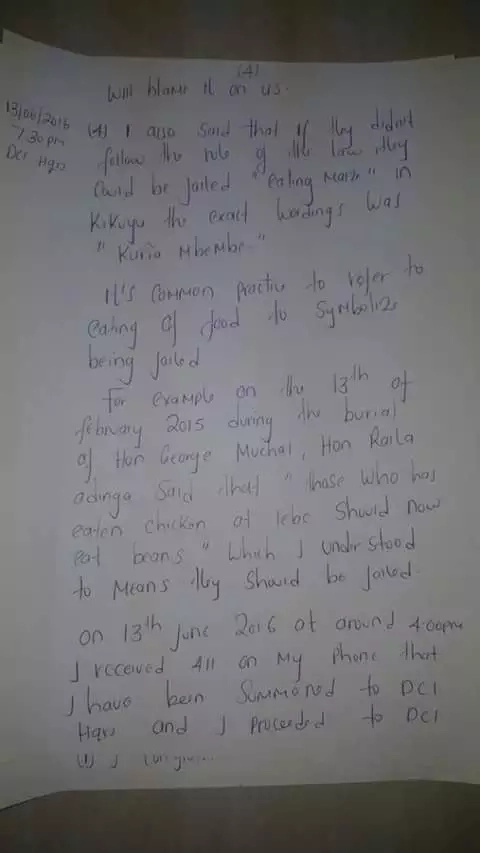 (4)
will blame it on us.
13/06/2016
7.30pm
DCI Hqrs
(4) I also said that if they didnt
follow the rule of the law they
could be jailed "eating maize" in
Kikuyu the exact wordings was
"Kuria Mbembe"
It's common practice to refer to
eating of food to symbolize
being jailed
For example on the 13th of
february 2015 during the burial
of Hon George Muchai, Hon Raila
odinga said that "those who has
eaten chicken at lebc should now
eat beans" which I understood
to means they should be jailed.
on 13th june 2016 at around 4:00pm
I received all on my phone that
I have been summoned to DCI
Hqrs and I proceeded to DCI
(1) I